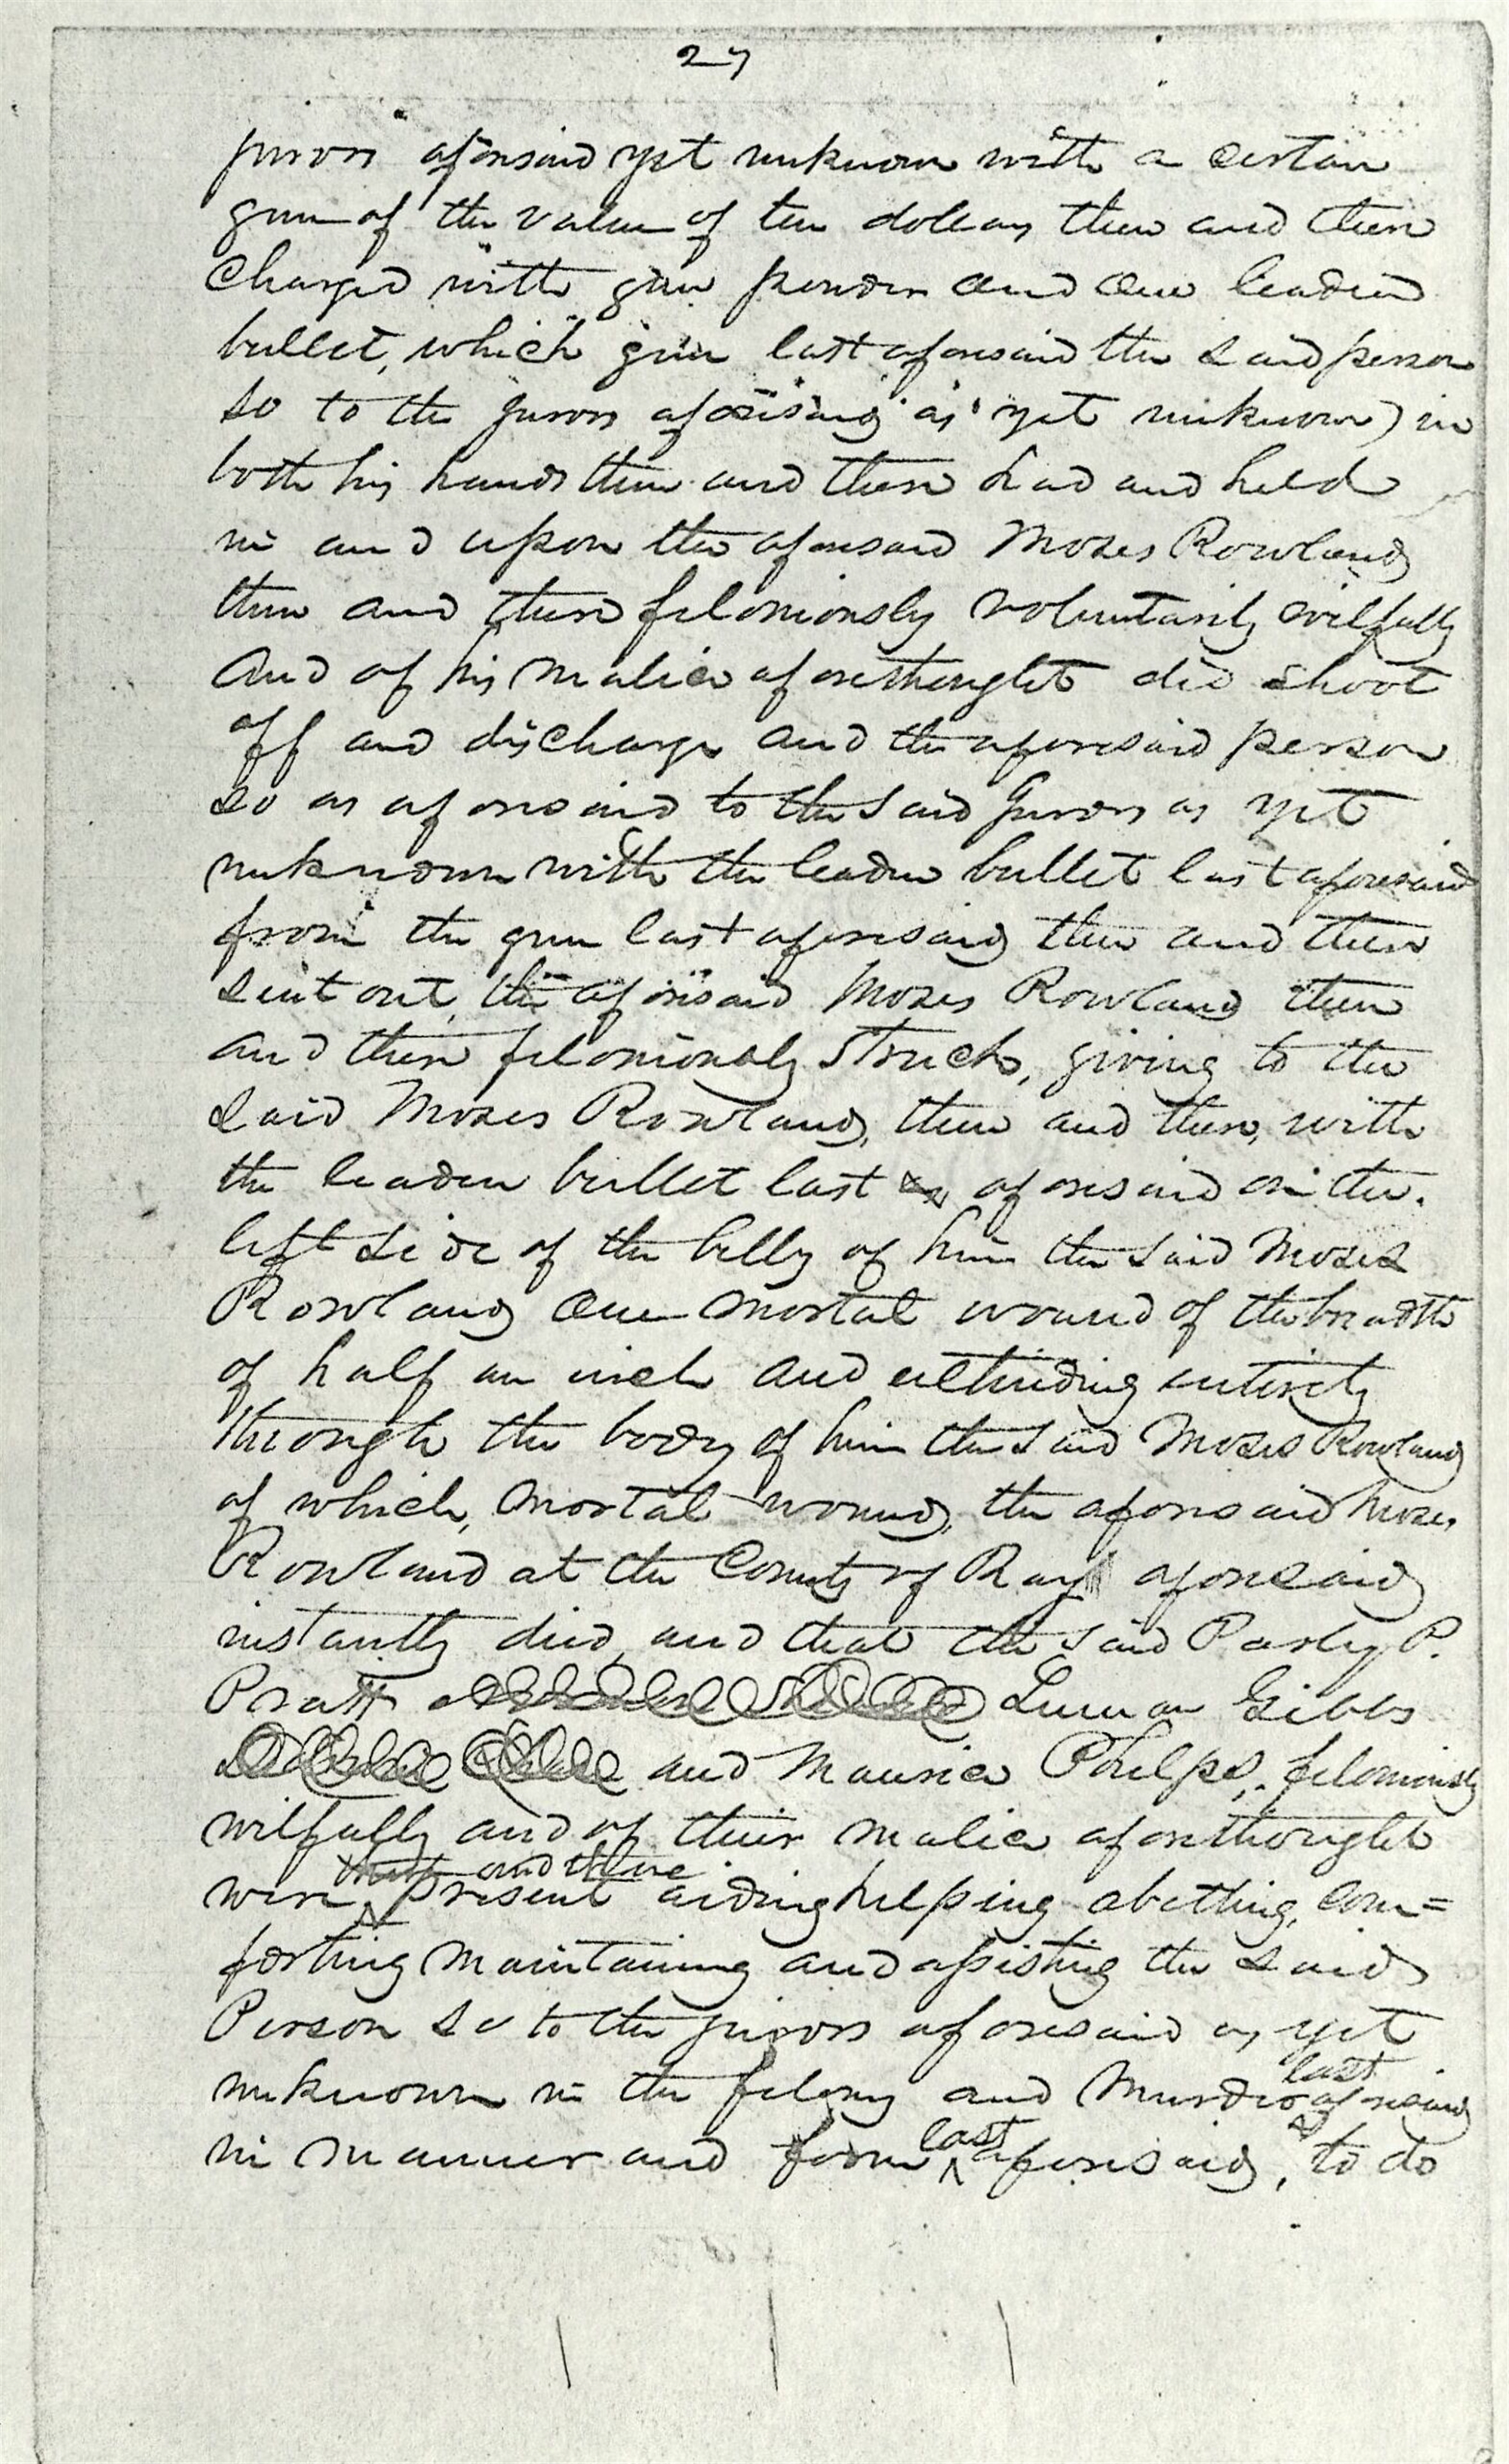 27
jurors aforesaid yet unknown with a certain
gun of the value of ten dollars then and there
Charged with gun powder and one leaden
bullet, which gun last aforesaid the said person
so to the jurors aforesaid as yet unknown) in
both his hands then and there had and held
in and upon the aforesaid Moses Rowland
then and there feloniously voluntarily wilfully
and of his malice aforethought did shoot
off and discharge and the aforesaid person
so as aforesaid to the said Jurors as yet
unknown with the leaden bullet last aforesaid
from the gun last aforesaid then and there
sent out, the aforesaid Moses Rowland then
and there feloniously struck, giving to the
said Moses Rowland, then and there, with
the leaden bullet last aforesaid on the
left side of the belly of him the said Moses
Rowland one mortal wound of the breadth
of half an inch and extending entirely
through the body of him the said Moses Rowland
of which, mortal wound, the aforesaid Moses
Rowland at the County of Ray aforesaid
instantly died, and that the said Parley P.
Pratt Luman Gibbs
and Maurice Phelps, feloniously
wilfully and of their malice aforethought
then and there
were present aiding helping abetting, com=
forting maintaining and assisting the said
Person so to the jurors aforesaid as yet
last
unknown in the felony and Murder aforesaid
last
in manner and form aforesaid, to do